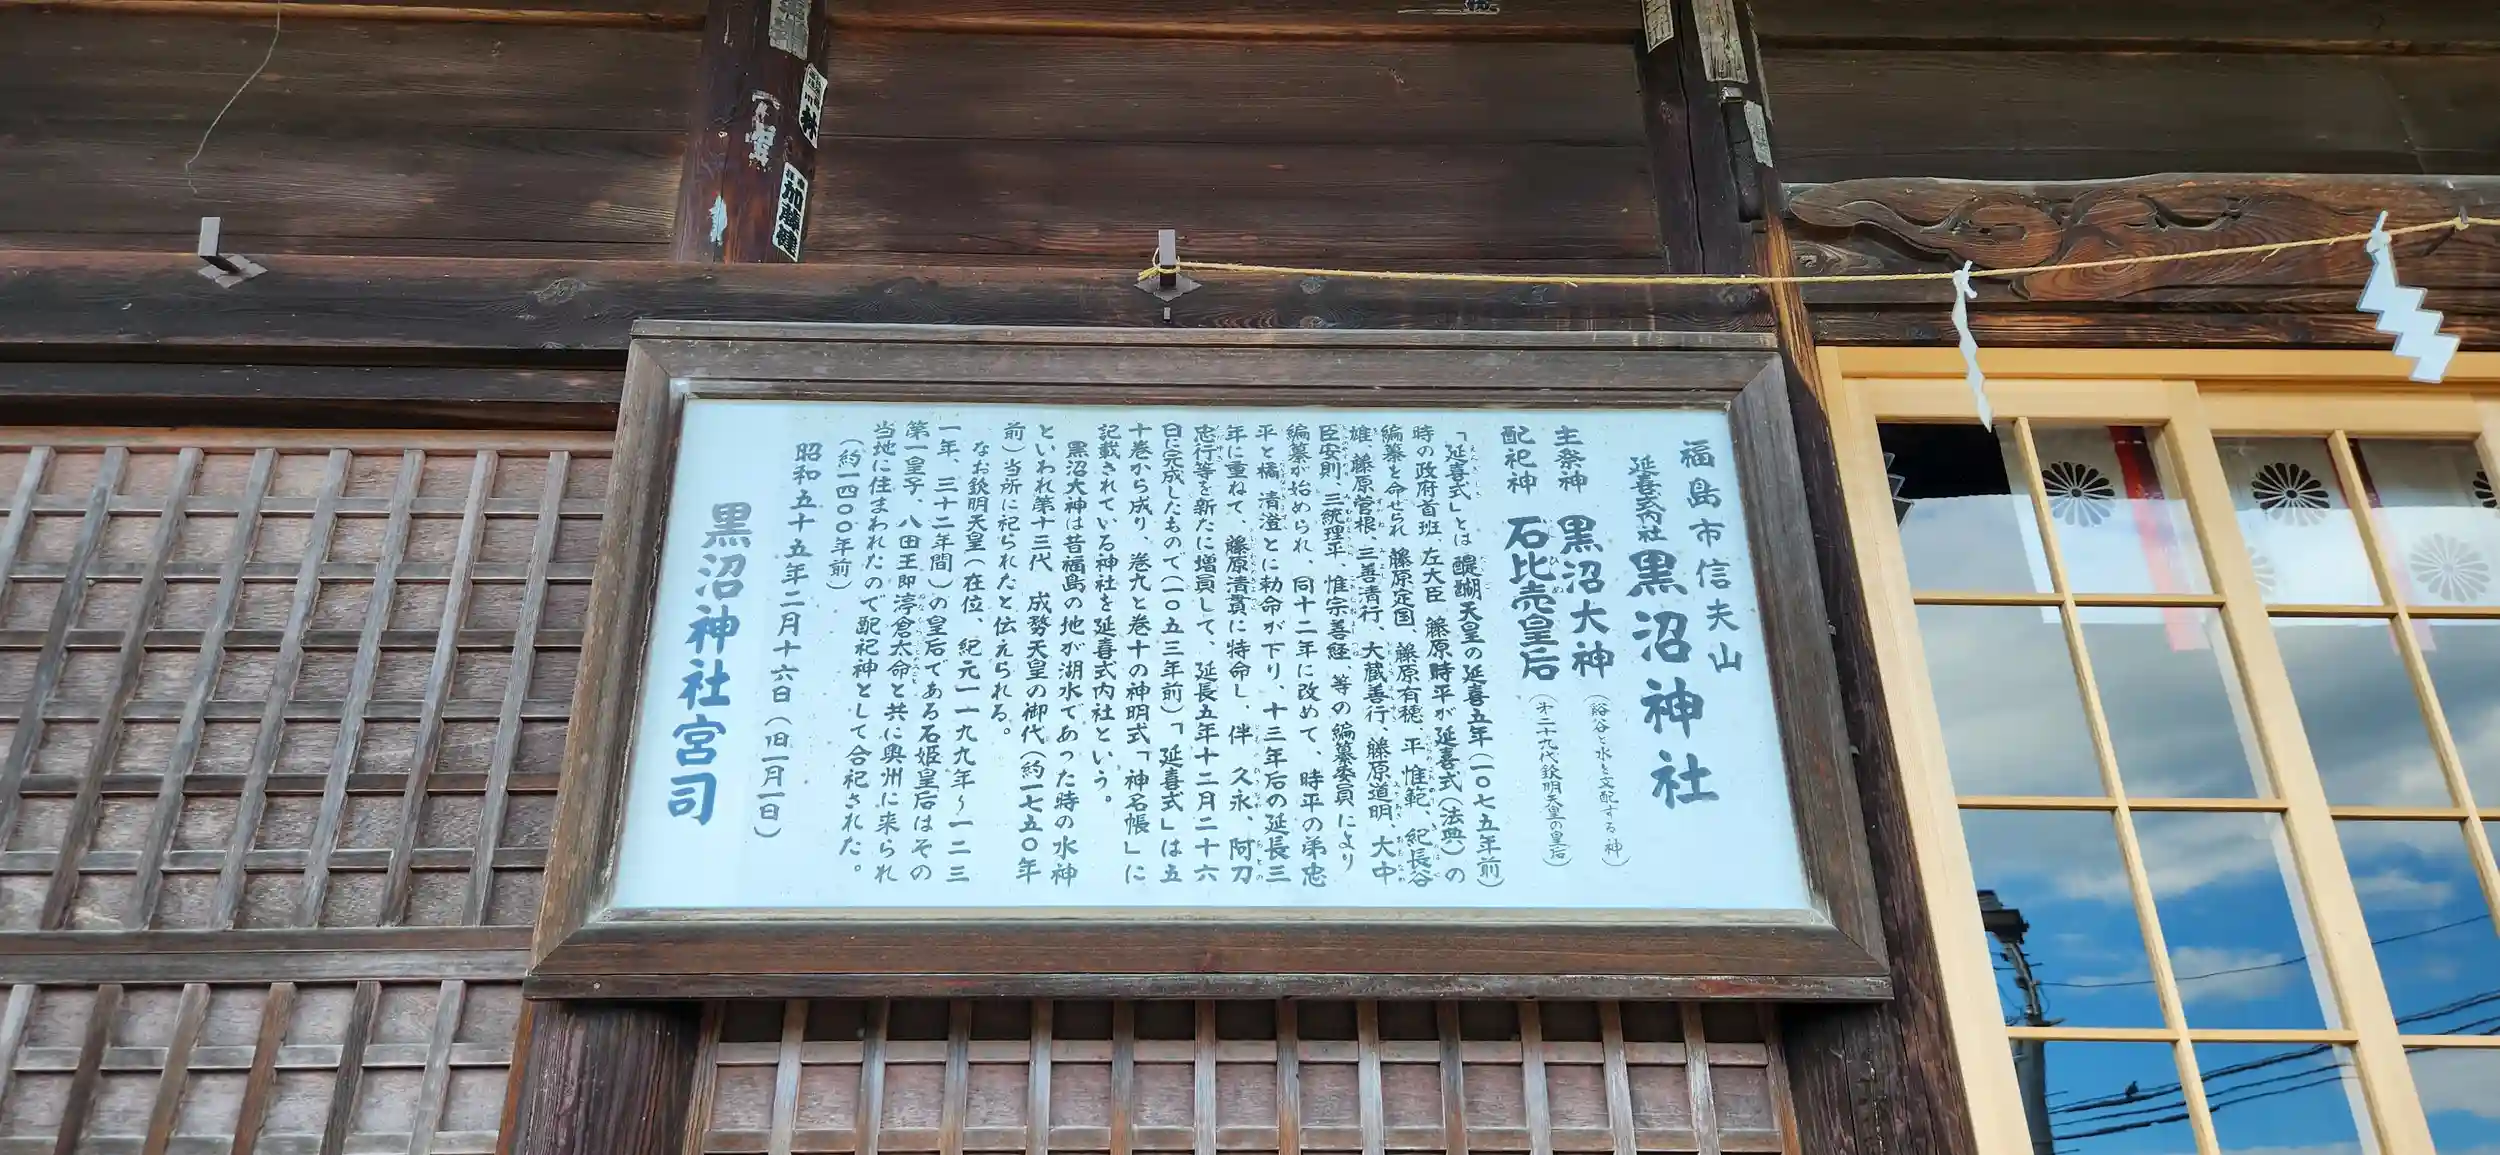 福島市信夫山
延喜式内社 黒沼神社
主祭神 黒沼大神（谿谷と水を支配する神）
配祀神 石比売皇后（才二十九代欽明天皇の皇后）
「延喜式」とは醍醐天皇の延喜五年（一〇七五年前）
時の政府首班、左大臣 藤原時平が延喜式（法典）の
編纂を命せられ 藤原定国、藤原有穂、平惟範、紀長谷
雄、藤原菅根、三善清行、大蔵善行、藤原道明、大中
臣安則、三統理平、惟宗善経、等の編纂委員により
編纂が始められ、同十二年に改めて、時平の弟忠
平と橘清澄とに勅命が下り、十三年后の延長三
年に重ねて、藤原清貫に特命し、伴 久永、阿刀
忠行等を新たに増員して、延長五年十二月二十六
日に完成したもので（一〇五三年前）「延喜式」は五
十巻から成り、巻九と巻十の神明式「神名帳」に
記載されている神社を延喜式内社という。
黒沼大神は昔福島の地が湖水であった時の水神
といわれ第十三代 成務天皇の御代（約一七五〇年
前）当所に祀られたと伝えられる。
なお欽明天皇（在位、紀元一一九九年～一二三
一年、三十二年間）の皇后である石姫皇后はその
第一皇子 八田王即渟倉太命と共に奥州に来られ
当地に住まわれたので配祀神として合祀された。
（約一四〇〇年前）
昭和五十五年二月十六日（旧一月一日）
黒沼神社宮司
加藤健